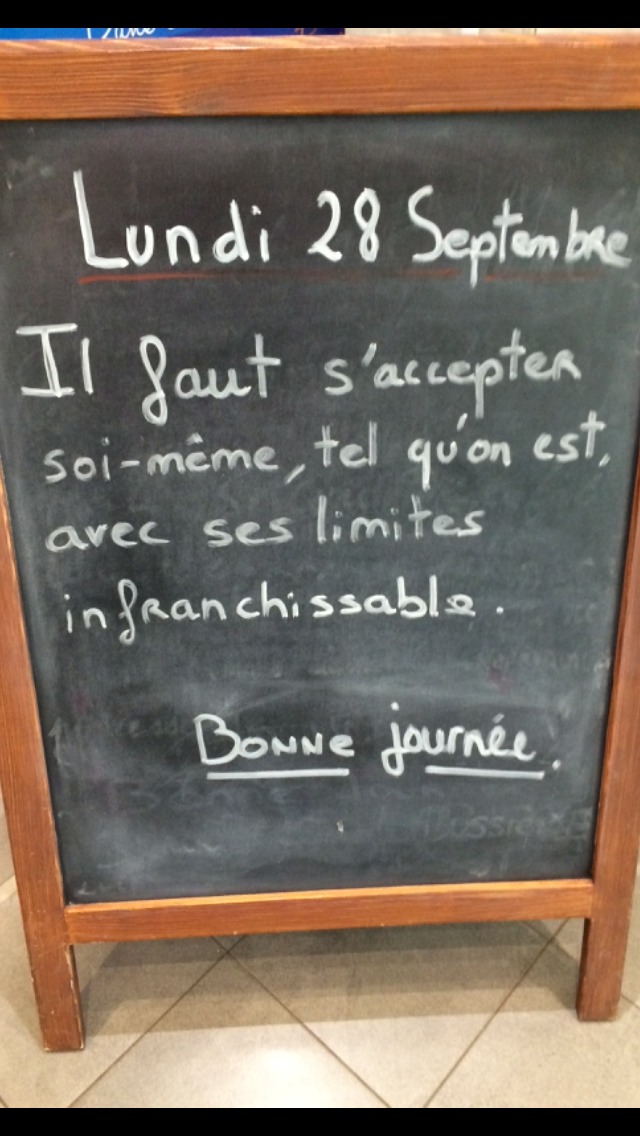 Lundi 28 Septembre
Il faut s'accepter
soi-même, tel qu'on est,
avec ses limites
infranchissable.
Bonne journée.